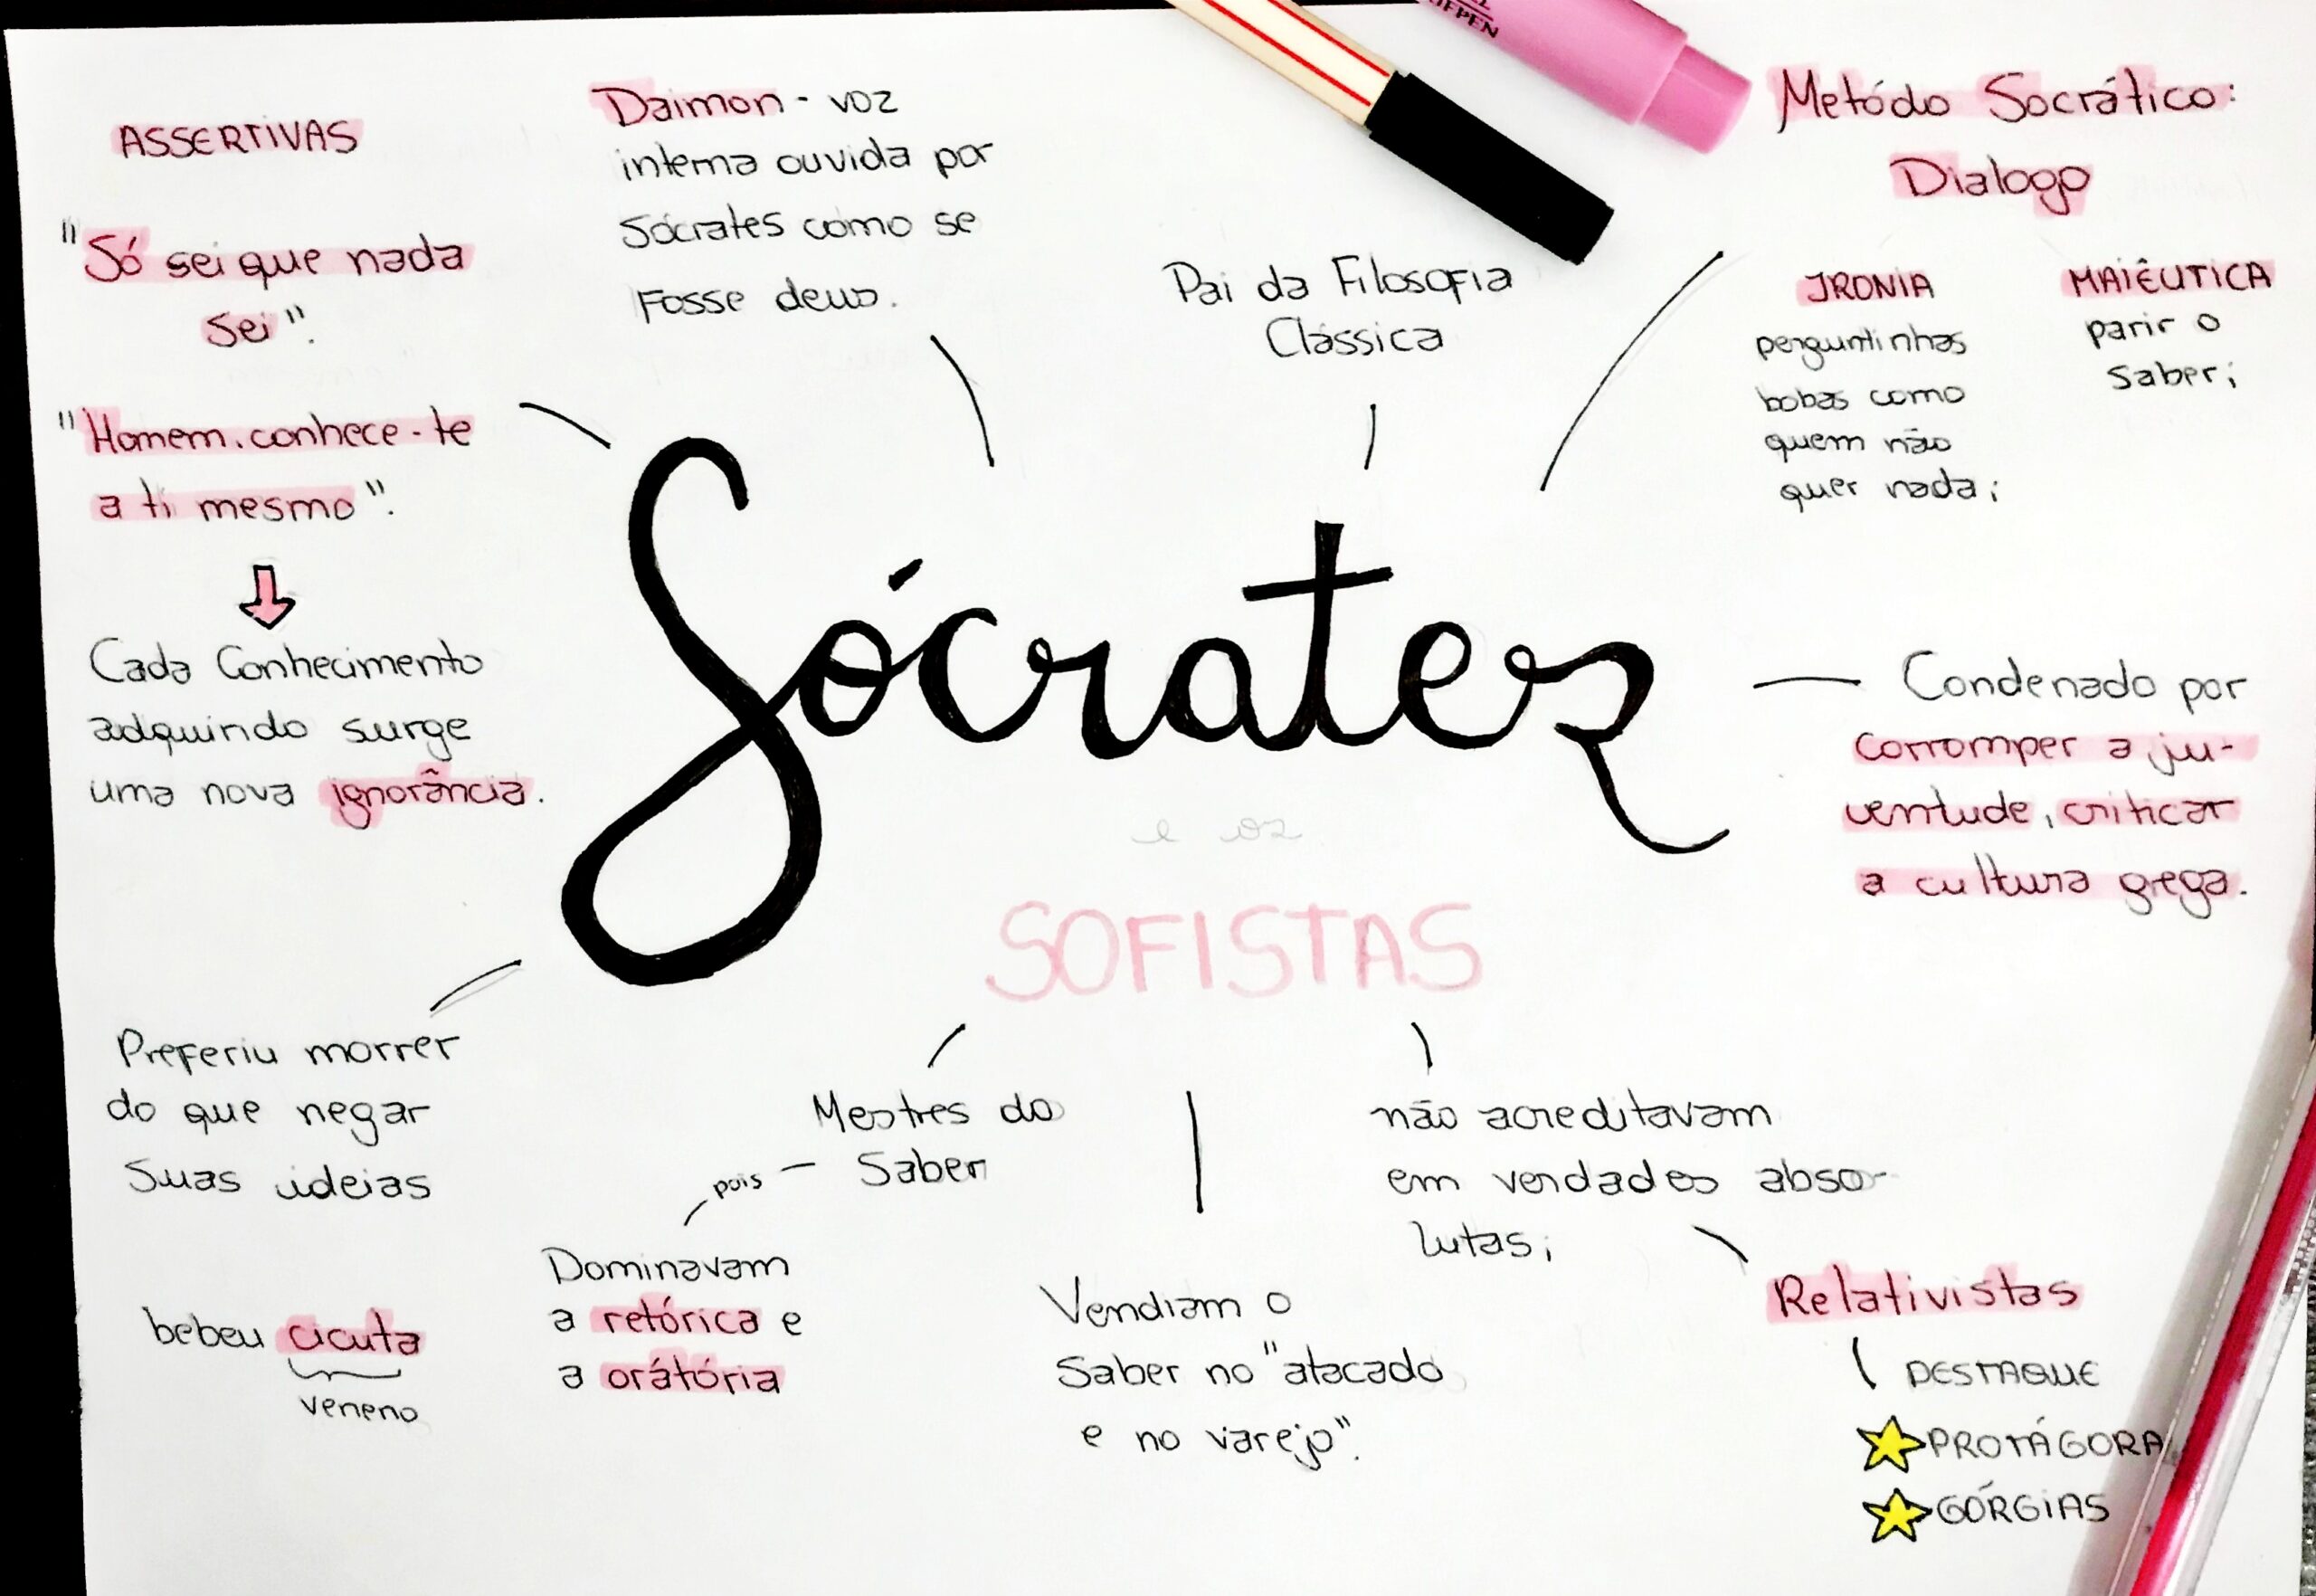 ASSERTIVAS
"Só sei que nada
sei".
"Homem, conhece-te
a ti mesmo".
Cada Conhecimento
adquirido surge
uma nova ignorância.
Daimon - voz
interna ouvida por
Sócrates como se
fosse deus.
Pai da Filosofia
Clássica
Metódo Socrático:
Dialogo
IRONIA
perguntinhas
bobas como
quem não
quer nada;
MAIÊUTICA
parir o
saber;
Sócrates
e os
SOFISTAS
Condenado por
corromper a ju-
ventude, criticar
a cultura grega.
Preferiu morrer
do que negar
suas ideias
bebeu cicuta
veneno
Mestres do
Saber
pois
Dominavam
a retórica e
a orátória
Vendiam o
Saber no "atacado
e no varejo".
não acreditavam
em verdades abso-
lutas;
Relativistas
DESTAQUE
PROTÁGORA
GÓRGIAS